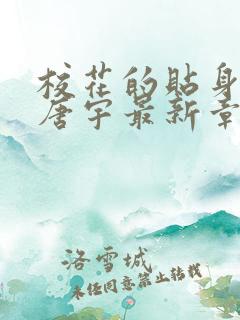 校花的贴身
唐宇最新章
洛雪城
未经同意禁止转载